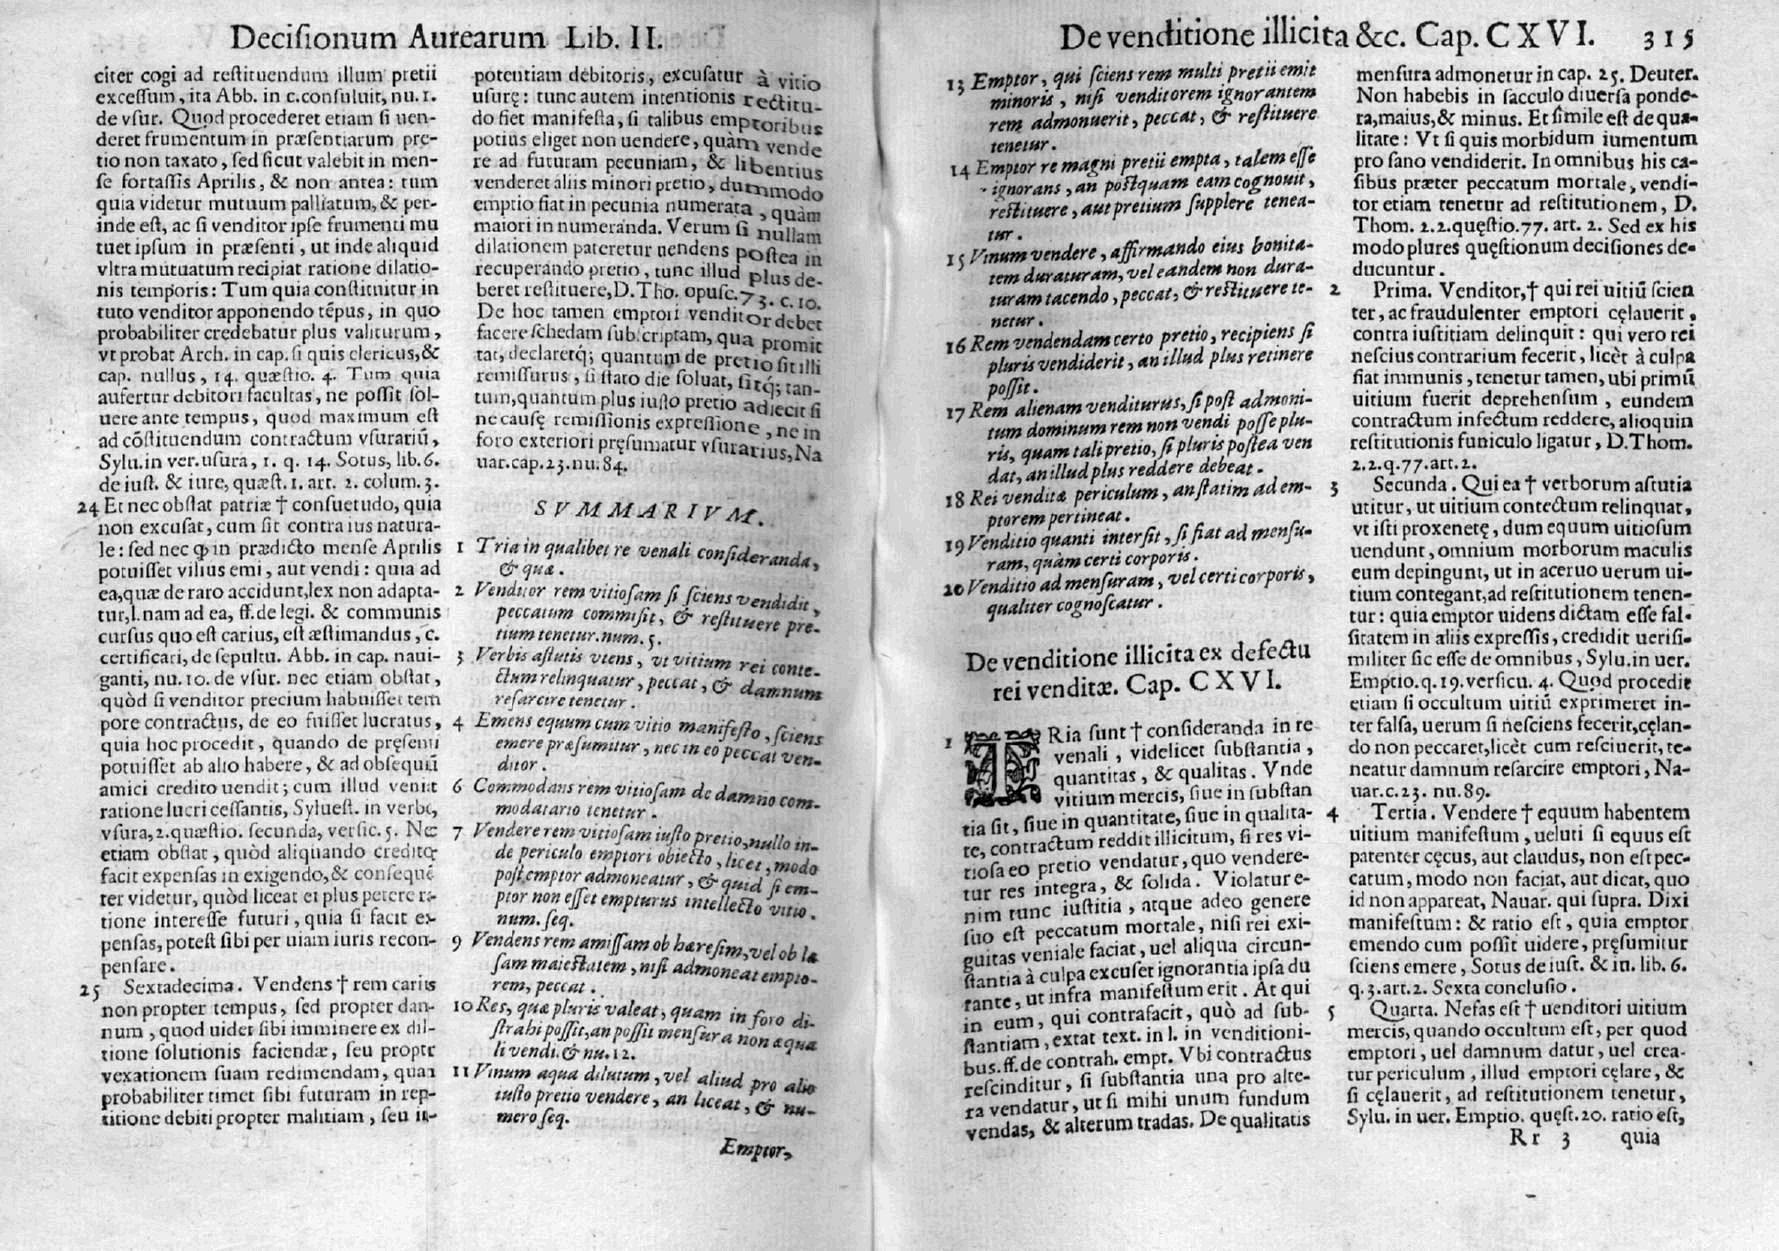 Decisionum Aurearum Lib. II.
citer cogi ad restituendum illum pretii
excessum, ita Abb. in c. consuluit, nu. 1.
de vsur. Quod procederet etiam si uen-
deret frumentum in præsentiarum pre-
tio non taxato, sed sicut valebit in men-
se fortassis Aprilis, & non antea: tum
quia videtur mutuum palliatum, & per-
inde est, ac si venditor ipse frumenti mu
tuet ipsum in præsenti, ut inde aliquid
vltra mutuatum recipiat ratione dilatio-
nis temporis: Tum quia constituitur in
tuto venditor apponendo tẽpus, in quo
probabiliter credebatur plus valiturum,
vt probat Arch. in cap. si quis clericus, &
cap. nullus, 14. quæstio. 4. Tum quia
aufertur debitori facultas, ne possit sol-
uere ante tempus, quod maximum est
ad cõstituendum contractum vsurariũ,
Sylu. in ver. usura, 1. q. 14. Sotus, lib. 6.
de iust. & iure, quæst. 1. art. 2. colum. 3.
24 Et nec obstat patriæ † consuetudo, quia
non excusat, cum sit contra ius natura-
le: sed nec ꝙ in prædicto mense Aprilis
potuisset vilius emi, aut vendi: quia ad
ea, quæ de raro accidunt, lex non adapta-
tur, l. nam ad ea, ff. de legi. & communis
cursus quo est carius, est æstimandus, c.
certificari, de sepultu. Abb. in cap. naui-
ganti, nu. 10. de vsur. nec etiam obstat,
quòd si venditor precium habuisset tem
pore contractus, de eo fuisset lucratus,
quia hoc procedit, quando de pręsenti
potuisset ab alio habere, & ad obsequiũ
amici credito uendit; cum illud veniat
ratione lucri cessantis, Syluest. in verbo,
vsura, 2. quæstio. secunda, versic. 5. Nec
etiam obstat, quòd aliquando creditor
facit expensas in exigendo, & consequẽ
ter videtur, quòd liceat et plus petere ra
tione interesse futuri, quia si facit ex
pensas, potest sibi per uiam iuris recon-
pensare.
25 Sextadecima. Vendens † rem carius
non propter tempus, sed propter dan-
num, quod uidet sibi imminere ex dil-
tione solutionis faciendæ, seu propter
vexationem suam redimendam, quam
probabiliter timet sibi futuram in rep-
titione debiti propter malitiam, seu im-
potentiam debitoris, excusatur à vitio
usurę: tunc autem intentionis rectitu-
do fiet manifesta, si talibus emptoribus
potius eliget non uendere, quàm vende
re ad futuram pecuniam, & libentius
venderet aliis minori pretio, dummodo
emptio fiat in pecunia numerata, quàm
maiori in numeranda. Verum si nullam
dilationem pateretur uendens postea in
recuperando pretio, tunc illud plus de-
beret restituere, D. Tho. opusc. 73. c. 10.
De hoc tamen emptori venditor debet
facere schedam subscriptam, qua promit
tat, declaretq; quantum de pretio sit illi
remissurus, si stato die soluat, sitq; tan-
tum, quantum plus iusto pretio adiecit si
ne causę remissionis expressione, ne in
foro exteriori pręsumatur vsurarius, Na
uar. cap. 23. nu. 84.
SVMMARIVM.
1 Tria in qualibet re venali consideranda,
& quæ.
2 Venditor rem vitiosam si sciens vendidit,
peccatum commisit, & restituere pre-
tium tenetur. num. 5.
3 Verbis astutis vtens, vt vitium rei conte-
ctum relinquatur, peccat, & damnum
resarcire tenetur.
4 Emens equum cum vitio manifesto, sciens
emere præsumitur, nec in eo peccat ven-
ditor.
6 Commodans rem vitiosam de damno com-
modatario tenetur.
7 Vendere rem vitiosam iusto pretio, nullo in-
de periculo emptori obiecto, licet, modo
post emptor admoneatur, & quid si em-
ptor non esset empturus intellecto vitio.
num. seq.
9 Vendens rem amissam ob hæresim, vel ob læ
sam maiestatem, nisi admoneat empto-
rem, peccat.
10 Res, quæ pluris valeat, quam in foro di-
strahi possit, an possit mensura non æqua
li vendi. & nu. 12.
11 Vinum aqua dilutum, vel aliud pro alio
iusto pretio vendere, an liceat, & nu-
mero seq.
Emptor,
De venditione illicita &c. Cap. CXVI. 315
13 Emptor, qui sciens rem multi pretii emit
minoris, nisi venditorem ignorantem
rem admonuerit, peccat, & restituere
tenetur.
14 Emptor re magni pretii empta, talem esse
ignorans, an postquam eam cognouit,
restituere, aut pretium supplere tenea-
tur.
15 Vinum vendere, affirmando eius bonita-
tem duraturam, vel eandem non dura-
turam tacendo, peccat, & restituere te-
netur.
16 Rem vendendam certo pretio, recipiens si
pluris vendiderit, an illud plus retinere
possit.
17 Rem alienam venditurus, si post admoni-
tum dominum rem non vendi posse plu-
ris, quam tali pretio, si pluris postea ven
dat, an illud plus reddere debeat.
18 Rei venditæ periculum, an statim ad em-
ptorem pertineat.
19 Venditio quanti intersit, si fiat ad mensu-
ram, quàm certi corporis.
20 Venditio ad mensuram, vel certi corporis,
qualiter cognoscatur.
De venditione illicita ex defectu
rei venditæ. Cap. CXVI.
1 TRia sunt † consideranda in re
venali, videlicet substantia,
quantitas, & qualitas. Vnde
vitium mercis, siue in substan
tia sit, siue in quantitate, siue in qualita-
te, contractum reddit illicitum, si res vi-
tiosa eo pretio vendatur, quo vendere-
tur res integra, & solida. Violatur e-
nim tunc iustitia, atque adeo genere
suo est peccatum mortale, nisi rei exi-
guitas veniale faciat, uel aliqua circun-
stantia à culpa excuset ignorantia ipsa du
rante, ut infra manifestum erit. At qui
in eum, qui contrafacit, quò ad sub-
stantiam, extat text. in l. in venditioni-
bus. ff. de contrah. empt. Vbi contractus
rescinditur, si substantia una pro alte-
ra vendatur, ut si mihi unum fundum
vendas, & alterum tradas. De qualitatis
mensura admonetur in cap. 25. Deuter.
Non habebis in sacculo diuersa ponde-
ra, maius, & minus. Et simile est de qua-
litate: Vt si quis morbidum iumentum
pro sano vendiderit. In omnibus his ca-
sibus præter peccatum mortale, vendi-
tor etiam tenetur ad restitutionem, D.
Thom. 2. 2. quęstio. 77. art. 2. Sed ex his
modo plures quęstionum decisiones de-
ducuntur.
2 Prima. Venditor, † qui rei uitiũ scien
ter, ac fraudulenter emptori cęlauerit,
contra iustitiam delinquit: qui vero rei
nescius contrarium fecerit, licèt à culpa
fiat immunis, tenetur tamen, ubi primũ
uitium fuerit deprehensum, eundem
contractum infectum reddere, alioquin
restitutionis funiculo ligatur, D. Thom.
2. 2. q. 77. art. 2.
3 Secunda. Qui ea † verborum astutia
utitur, ut uitium contectum relinquat,
vt isti proxenetę, dum equum uitiosum
uendunt, omnium morborum maculis
eum depingunt, ut in aceruo uerum ui-
tium contegant, ad restitutionem tenen-
tur: quia emptor uidens dictam esse fal-
sitatem in aliis expressis, credidit uerisi-
militer sic esse de omnibus, Sylu. in uer.
Emptio. q. 19. versicu. 4. Quod procedit
etiam si occultum uitiũ exprimeret in-
ter falsa, uerum si nesciens fecerit, cęlan-
do non peccaret, licèt cum resciuerit, te-
neatur damnum resarcire emptori, Na-
uar. c. 23. nu. 89.
4 Tertia. Vendere † equum habentem
uitium manifestum, ueluti si equus est
patenter cęcus, aut claudus, non est pec-
catum, modo non faciat, aut dicat, quo
id non appareat, Nauar. qui supra. Dixi
manifestum: & ratio est, quia emptor
emendo cum possit uidere, pręsumitur
sciens emere, Sotus de iust. & iu. lib. 6.
q. 3. art. 2. Sexta conclusio.
5 Quarta. Nefas est † uenditori uitium
mercis, quando occultum est, per quod
emptori, uel damnum datur, uel crea-
tur periculum, illud emptori cęlare, &
si cęlauerit, ad restitutionem tenetur,
Sylu. in uer. Emptio. quęst. 20. ratio est,
Rr 3 quia